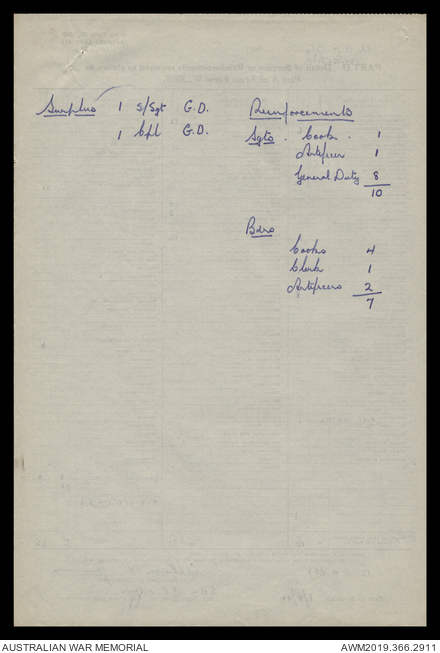 Surplus 1 S/Sgt G.D.
1 Cpl G.D.
Reinforcements
Sgts. Cook. 1
Artificer 1
General Duty 8
10
Bdrs
Cooks 4
Clerk 1
Artificers 2
7
AUSTRALIAN WAR MEMORIAL
AWM2019.366.2911